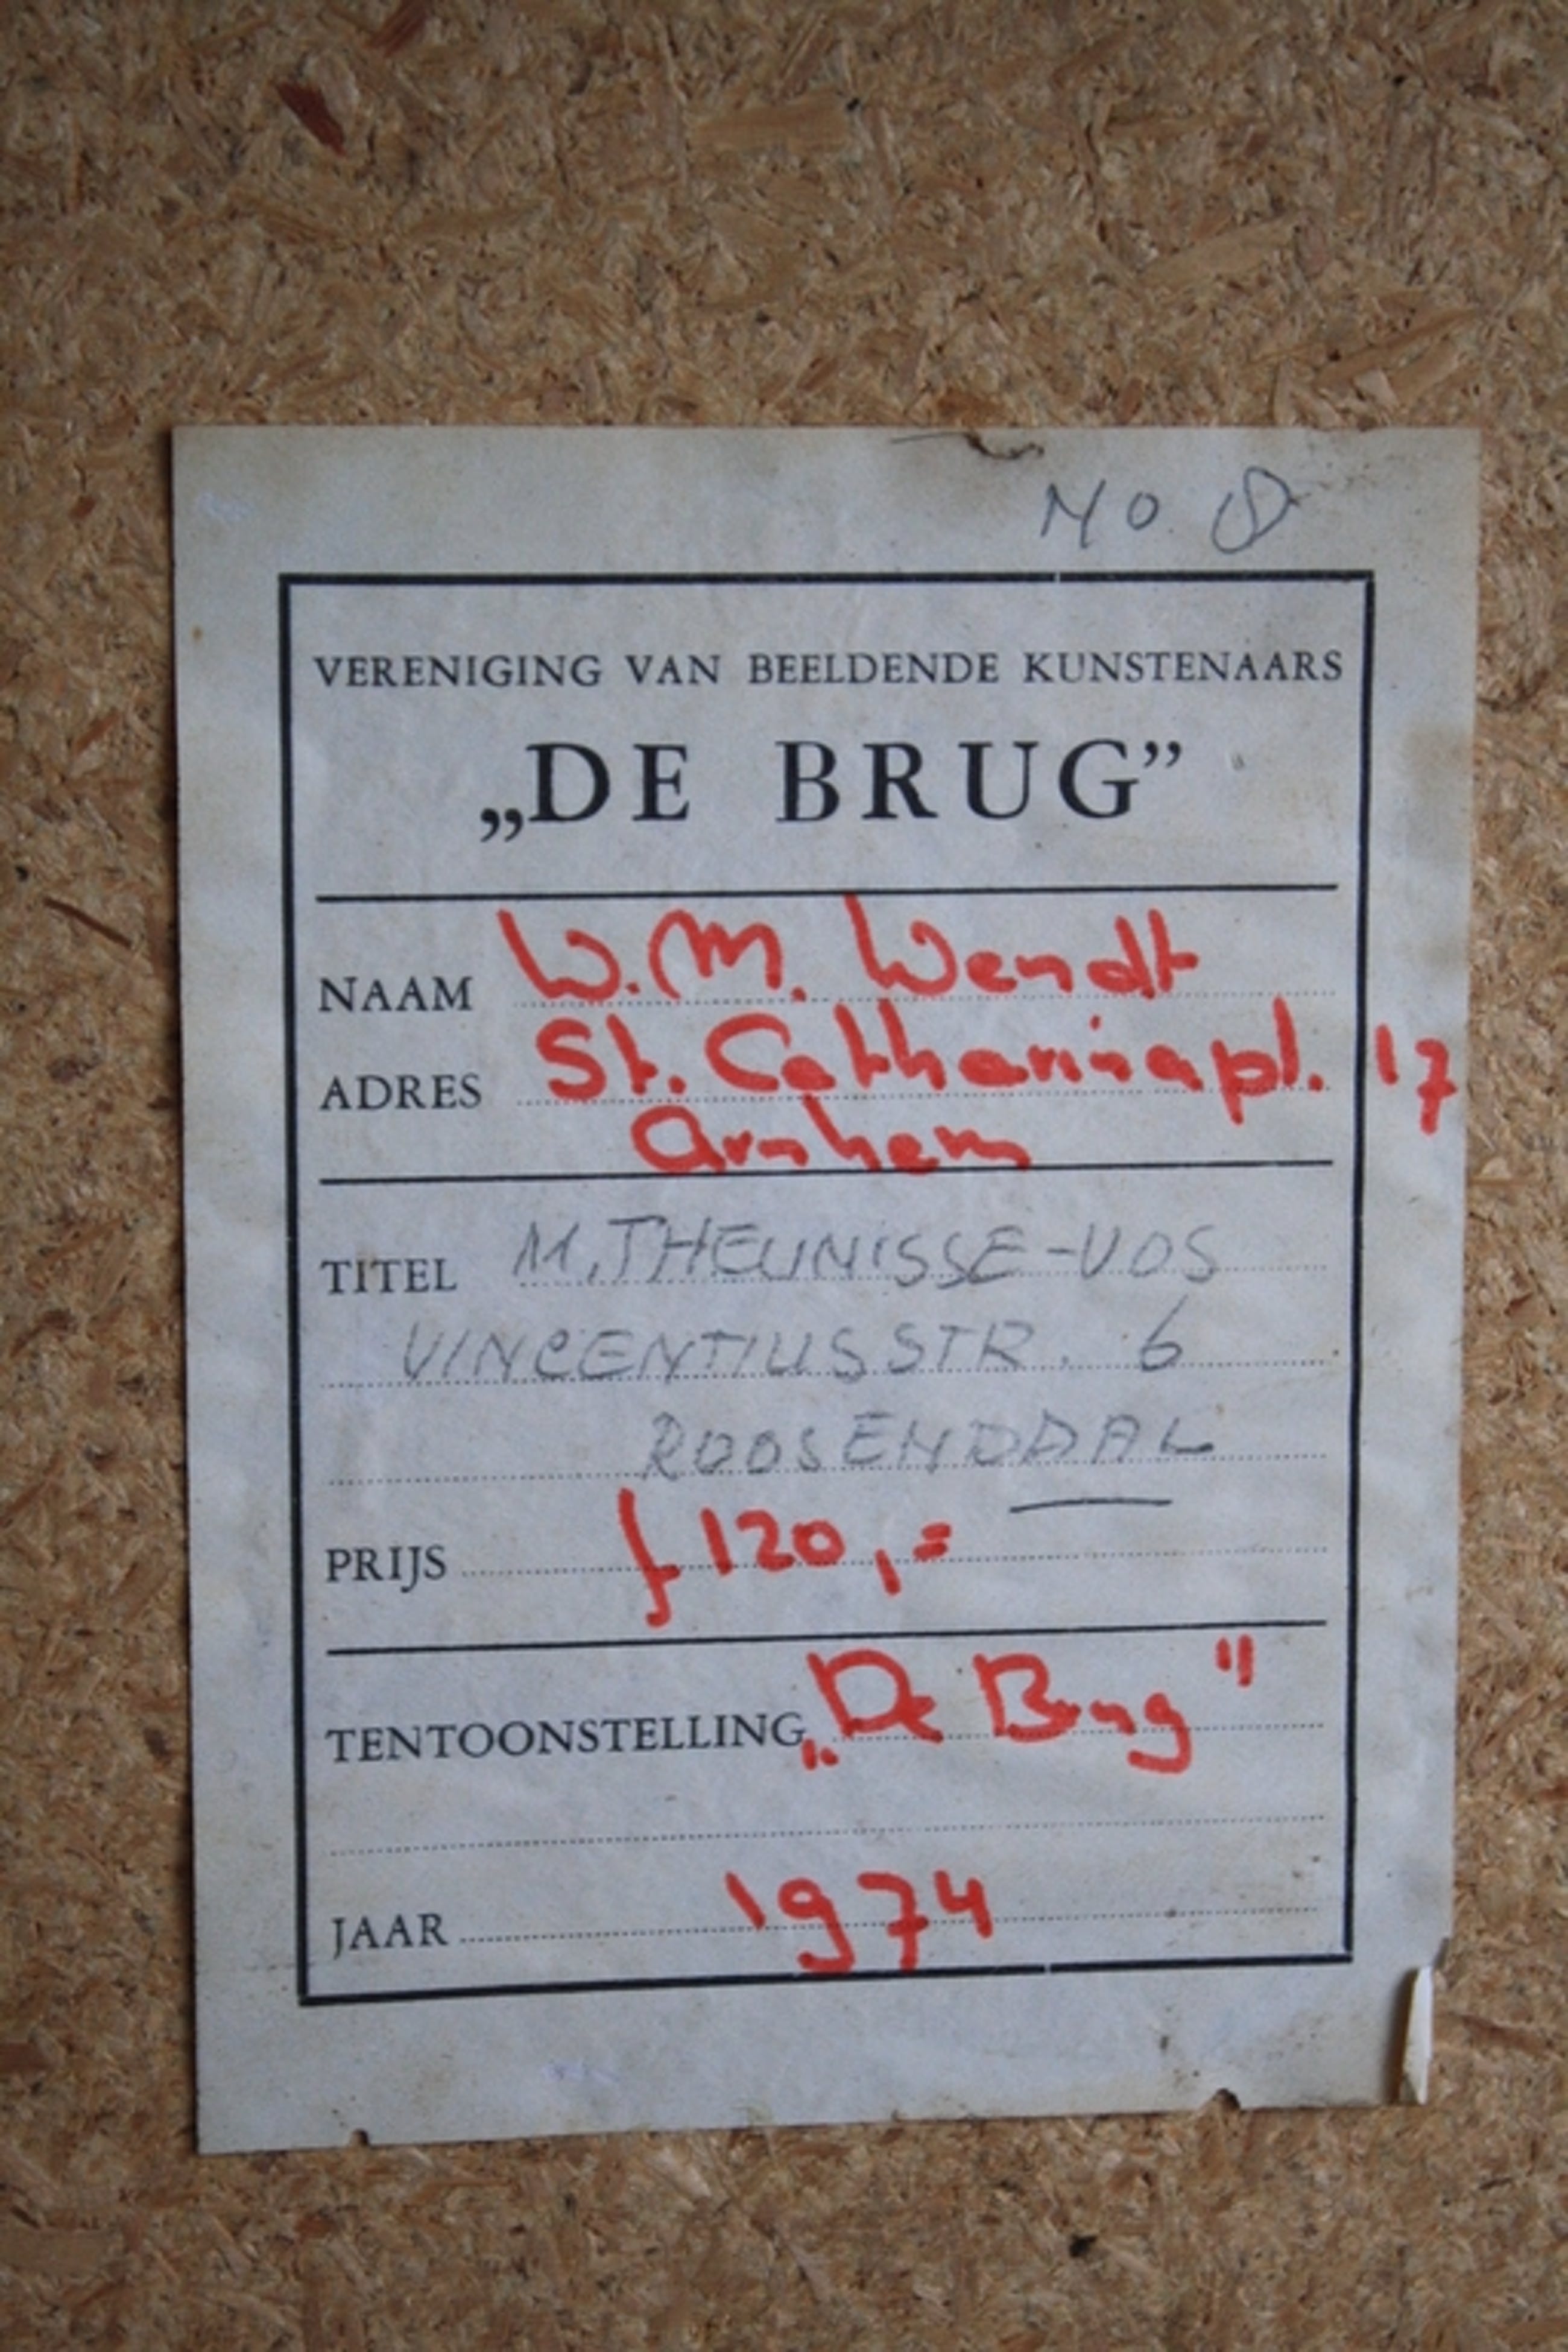 NO 8
VERENIGING VAN BEELDENDE KUNSTENAARS
„DE BRUG”
NAAM W. M. Wendt
ADRES St. Catharinapl. 17
Arnhem
TITEL M. THEUNISSE-VOS
VINCENTIUSSTR. 6
ROOSENDAAL
PRIJS f 120,=
TENTOONSTELLING „De Brug"
JAAR 1974